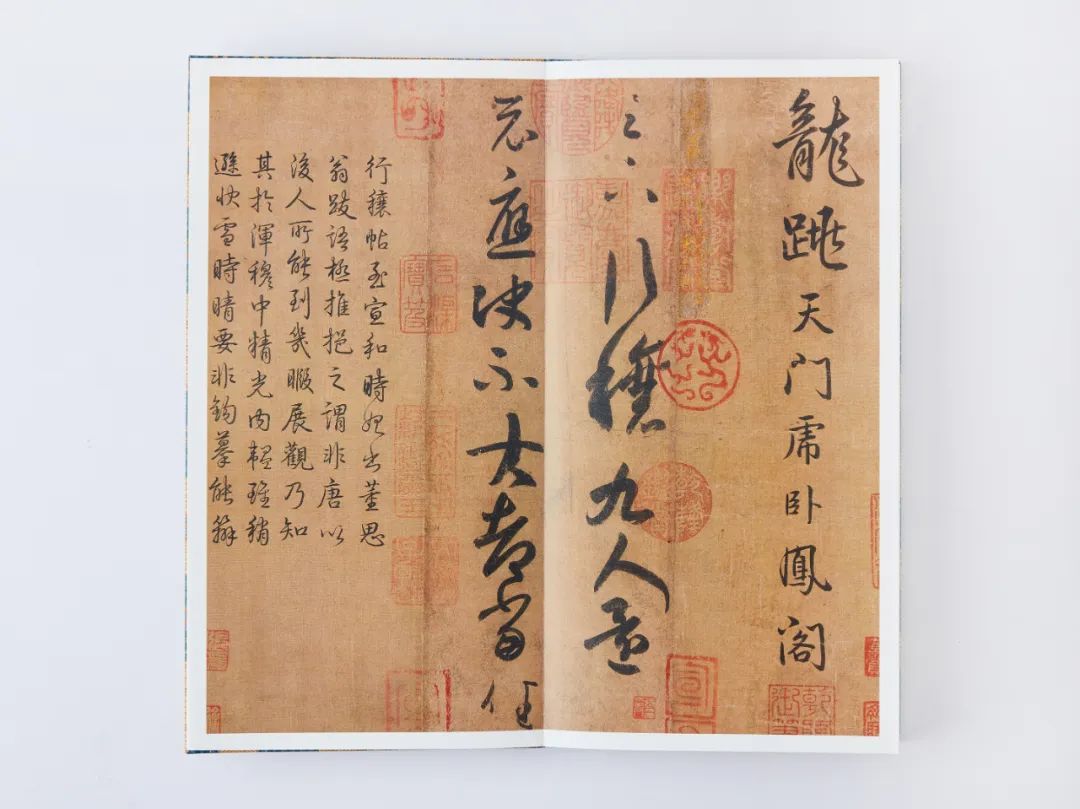 龍跳天門虎卧鳳閣
足下行穰九人還
示應決不大都當佳
行穰帖至宣和時始出董思
翁跋語極推挹之謂非唐以
後人所能到幾暇展觀乃知
其於渾穆中精光內韞雖稍
遜快雪時晴要非鉤摹能辦